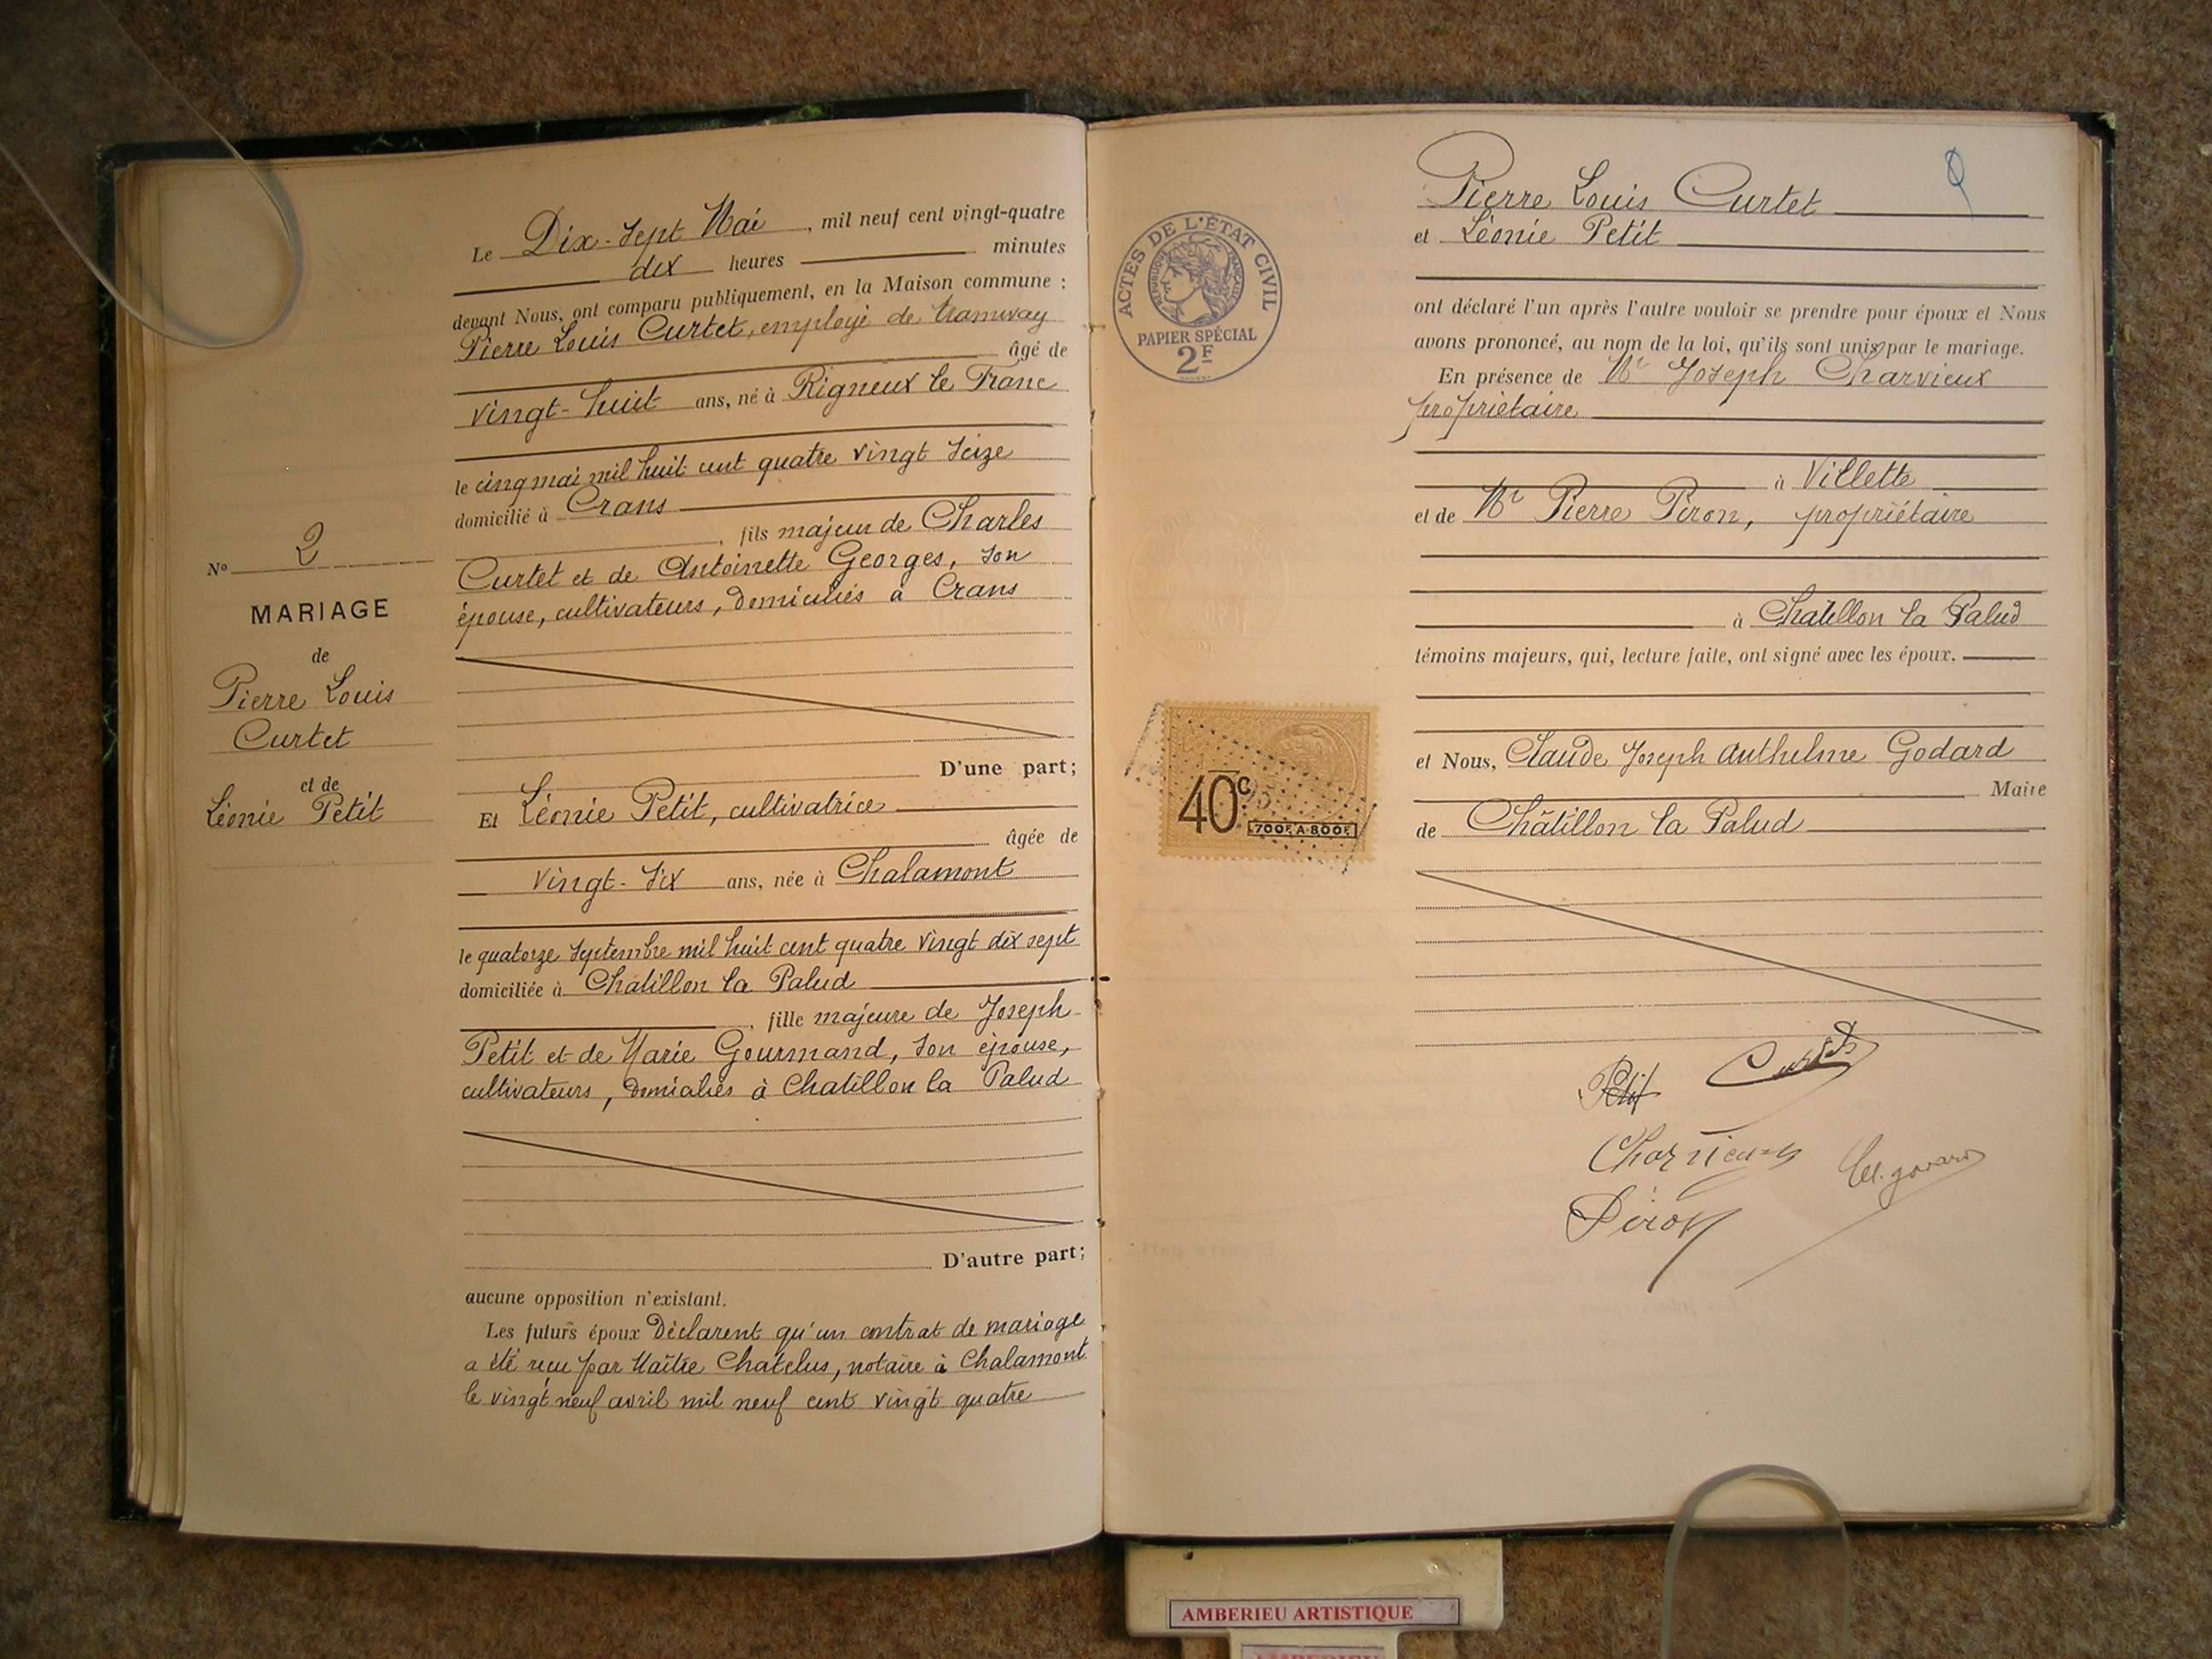 Le Dix-sept Mai, mil neuf cent vingt-quatre
dix heures minutes
devant Nous, ont comparu publiquement, en la Maison commune :
Pierre Louis Curtet, employé de tramway
âgé de
vingt-huit ans, né à Rigneux le Franc
le cinq mai mil huit cent quatre vingt seize
domicilié à Crans
, fils majeur de Charles
Curtet et de Antoinette Georges, son
épouse, cultivateurs, domiciliés à Crans
D'une part;
Et Léonie Petit, cultivatrice
âgée de
vingt-six ans, née à Chalamont
le quatorze septembre mil huit cent quatre vingt dix sept
domiciliée à Chatillon la Palud
, fille majeure de Joseph
Petit et de Marie Gourmand, son épouse,
cultivateurs, domiciliés à Chatillon la Palud
D'autre part;
aucune opposition n'existant.
Les futurs époux déclarent qu'un contrat de mariage
a été reçu par Maître Chatelus, notaire à Chalamont
le vingt neuf avril mil neuf cent vingt quatre
N° 2
MARIAGE
de
Pierre Louis
Curtet
et de
Léonie Petit
ACTES DE L'ÉTAT CIVIL
RÉPUBLIQUE FRANÇAISE
PAPIER SPÉCIAL
2F
40c
700F A 800F
Pierre Louis Curtet
et Léonie Petit
ont déclaré l'un après l'autre vouloir se prendre pour époux et Nous
avons prononcé, au nom de la loi, qu'ils sont unis par le mariage.
En présence de Mr Joseph Charvieux
propriétaire
à Villette
et de Mr Pierre Piron, propriétaire
à Chatillon la Palud
témoins majeurs, qui, lecture faite, ont signé avec les époux.
et Nous, Claude Joseph Anthelme Godard
Maire
de Châtillon la Palud
Petit Curtet
Charvieux
Piron
AMBERIEU ARTISTIQUE
AMBERIEU